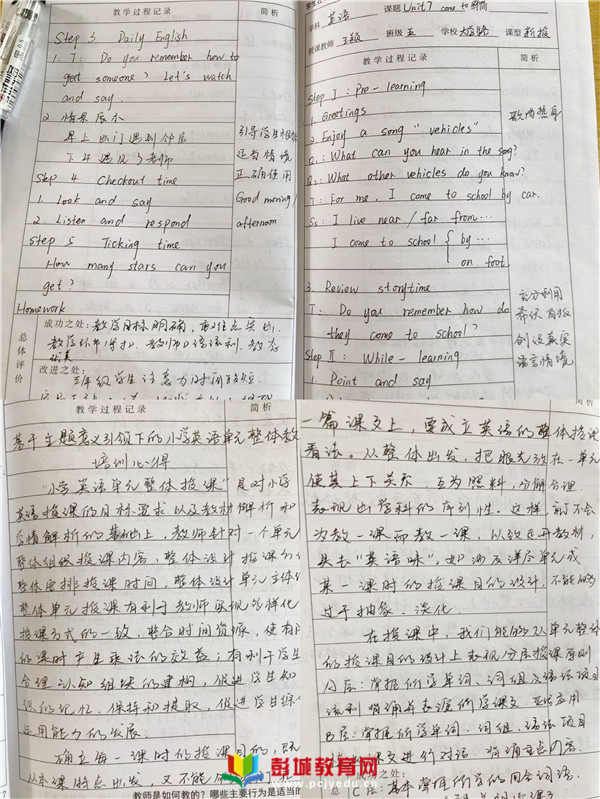 教学过程记录
简析
Step 3 Daily English
1. T: Do you remember how to
geet someone? Let's watch
and say.
2. 情景展示
早上出门遇到邻居
下午遇见了老师
引导学生
运用情境
正确使用
Good morning/
afternoon
Step 4 Checkout time
1. Look and say
2. Listen and respond
Step 5 Ticking time
How many stars can you
get?
Homework
总体评价
成功之处:教学目标明确,重难点突出,
改进之处:
三年级学生注意力时间较短
学科 英语 课题 Unit 7 come to
授课教师 王颖 班级 五 学校 课型 新授
教学过程记录
简析
Step I: Pre-learning
1. Greetings
2. Enjoy a song "vehicles"
Q1: What can you hear in the song?
Q2: What other vehicles do you know?
T: For me, I come to school by car.
Ss: I live near / far from...
I come to school { by ...
on foot.
3. Review storytime
T: Do you remember how do
they come to school?
Step II: While-learning
1. Point and say
歌曲热身
充分利用
创设真实
语言情境
教学过程记录
简析
基于主题意义引领下的小学英语单元整体教
培训心得
"小学英语单元整体授课"是对小学
英语授课的目标要求以及教材解析和
学情解析的基础上,教师针对一个单元
整体组织授课内容,整体设计授课方
整体安排授课时间,整体设计单元主体
整体单元授课有利于教师实现多样化
授课方式的一致,整合时间资源,使有限
的课时产生乘法的效益;有利于学生
合理认知组块的建构,促进学生知
识的记忆、保持和提取,促进学生综
运用能力的发展。
确立每一课时的授课目的,既
从本课特点出发,又不能
教师是如何教的?哪些主要行为是适当的
一篇课文上,要成立英语的整体授课
看法。从整体出发,把眼光放在一单元
使其上下关系,互为照料,分解合理
表现出学科的序列性。这样,就不会
为教一课而教一课,以致走开教材,
失去"英语味"。如涉及详尽单元或
某一课时的授课目的设计,不能够
过于抽象、淡化
在授课中,我们能够从单元整体
的授课目的设计上表现分层授课原则
A层:掌握所学单词、词组及语法项目
流利背诵并表演所学课文
B层:掌握所学单词、词组、语法项目
课文进行对话,背诵重点内容。
C层:基本掌握所学的四会词语。
彭城教育网
www.pcjyw.com